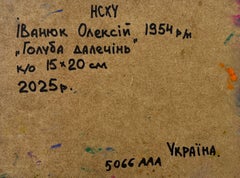 НСХУ
Іванюк Олексій 1954 р.н.
„Голуба далечінь"
к/о 15×20 см
2025р.
Україна.
5066 ААА